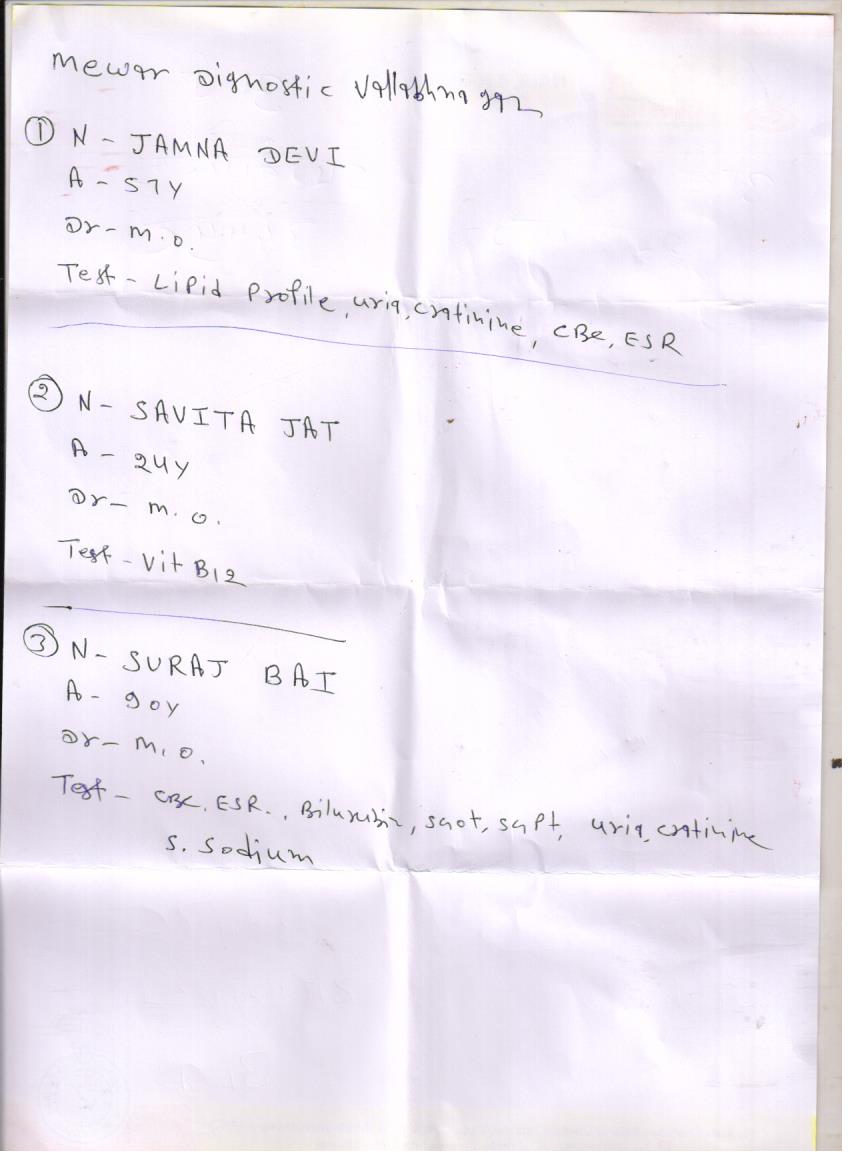 Mewar Dignostic Vallabhnagar
① N - JAMNA DEVI
A - 57Y
Dr - M.O.
Test - Lipid Profile, uria, cratinine, CBC, ESR
② N - SAVITA JAT
A - 24Y
Dr - M.O.
Test - Vit B12
③ N - SURAJ BAI
A - 90Y
Dr - M.O.
Test - CBC, ESR., Bilurubin, sgot, sgpt, uria, cratinine
S. Sodium